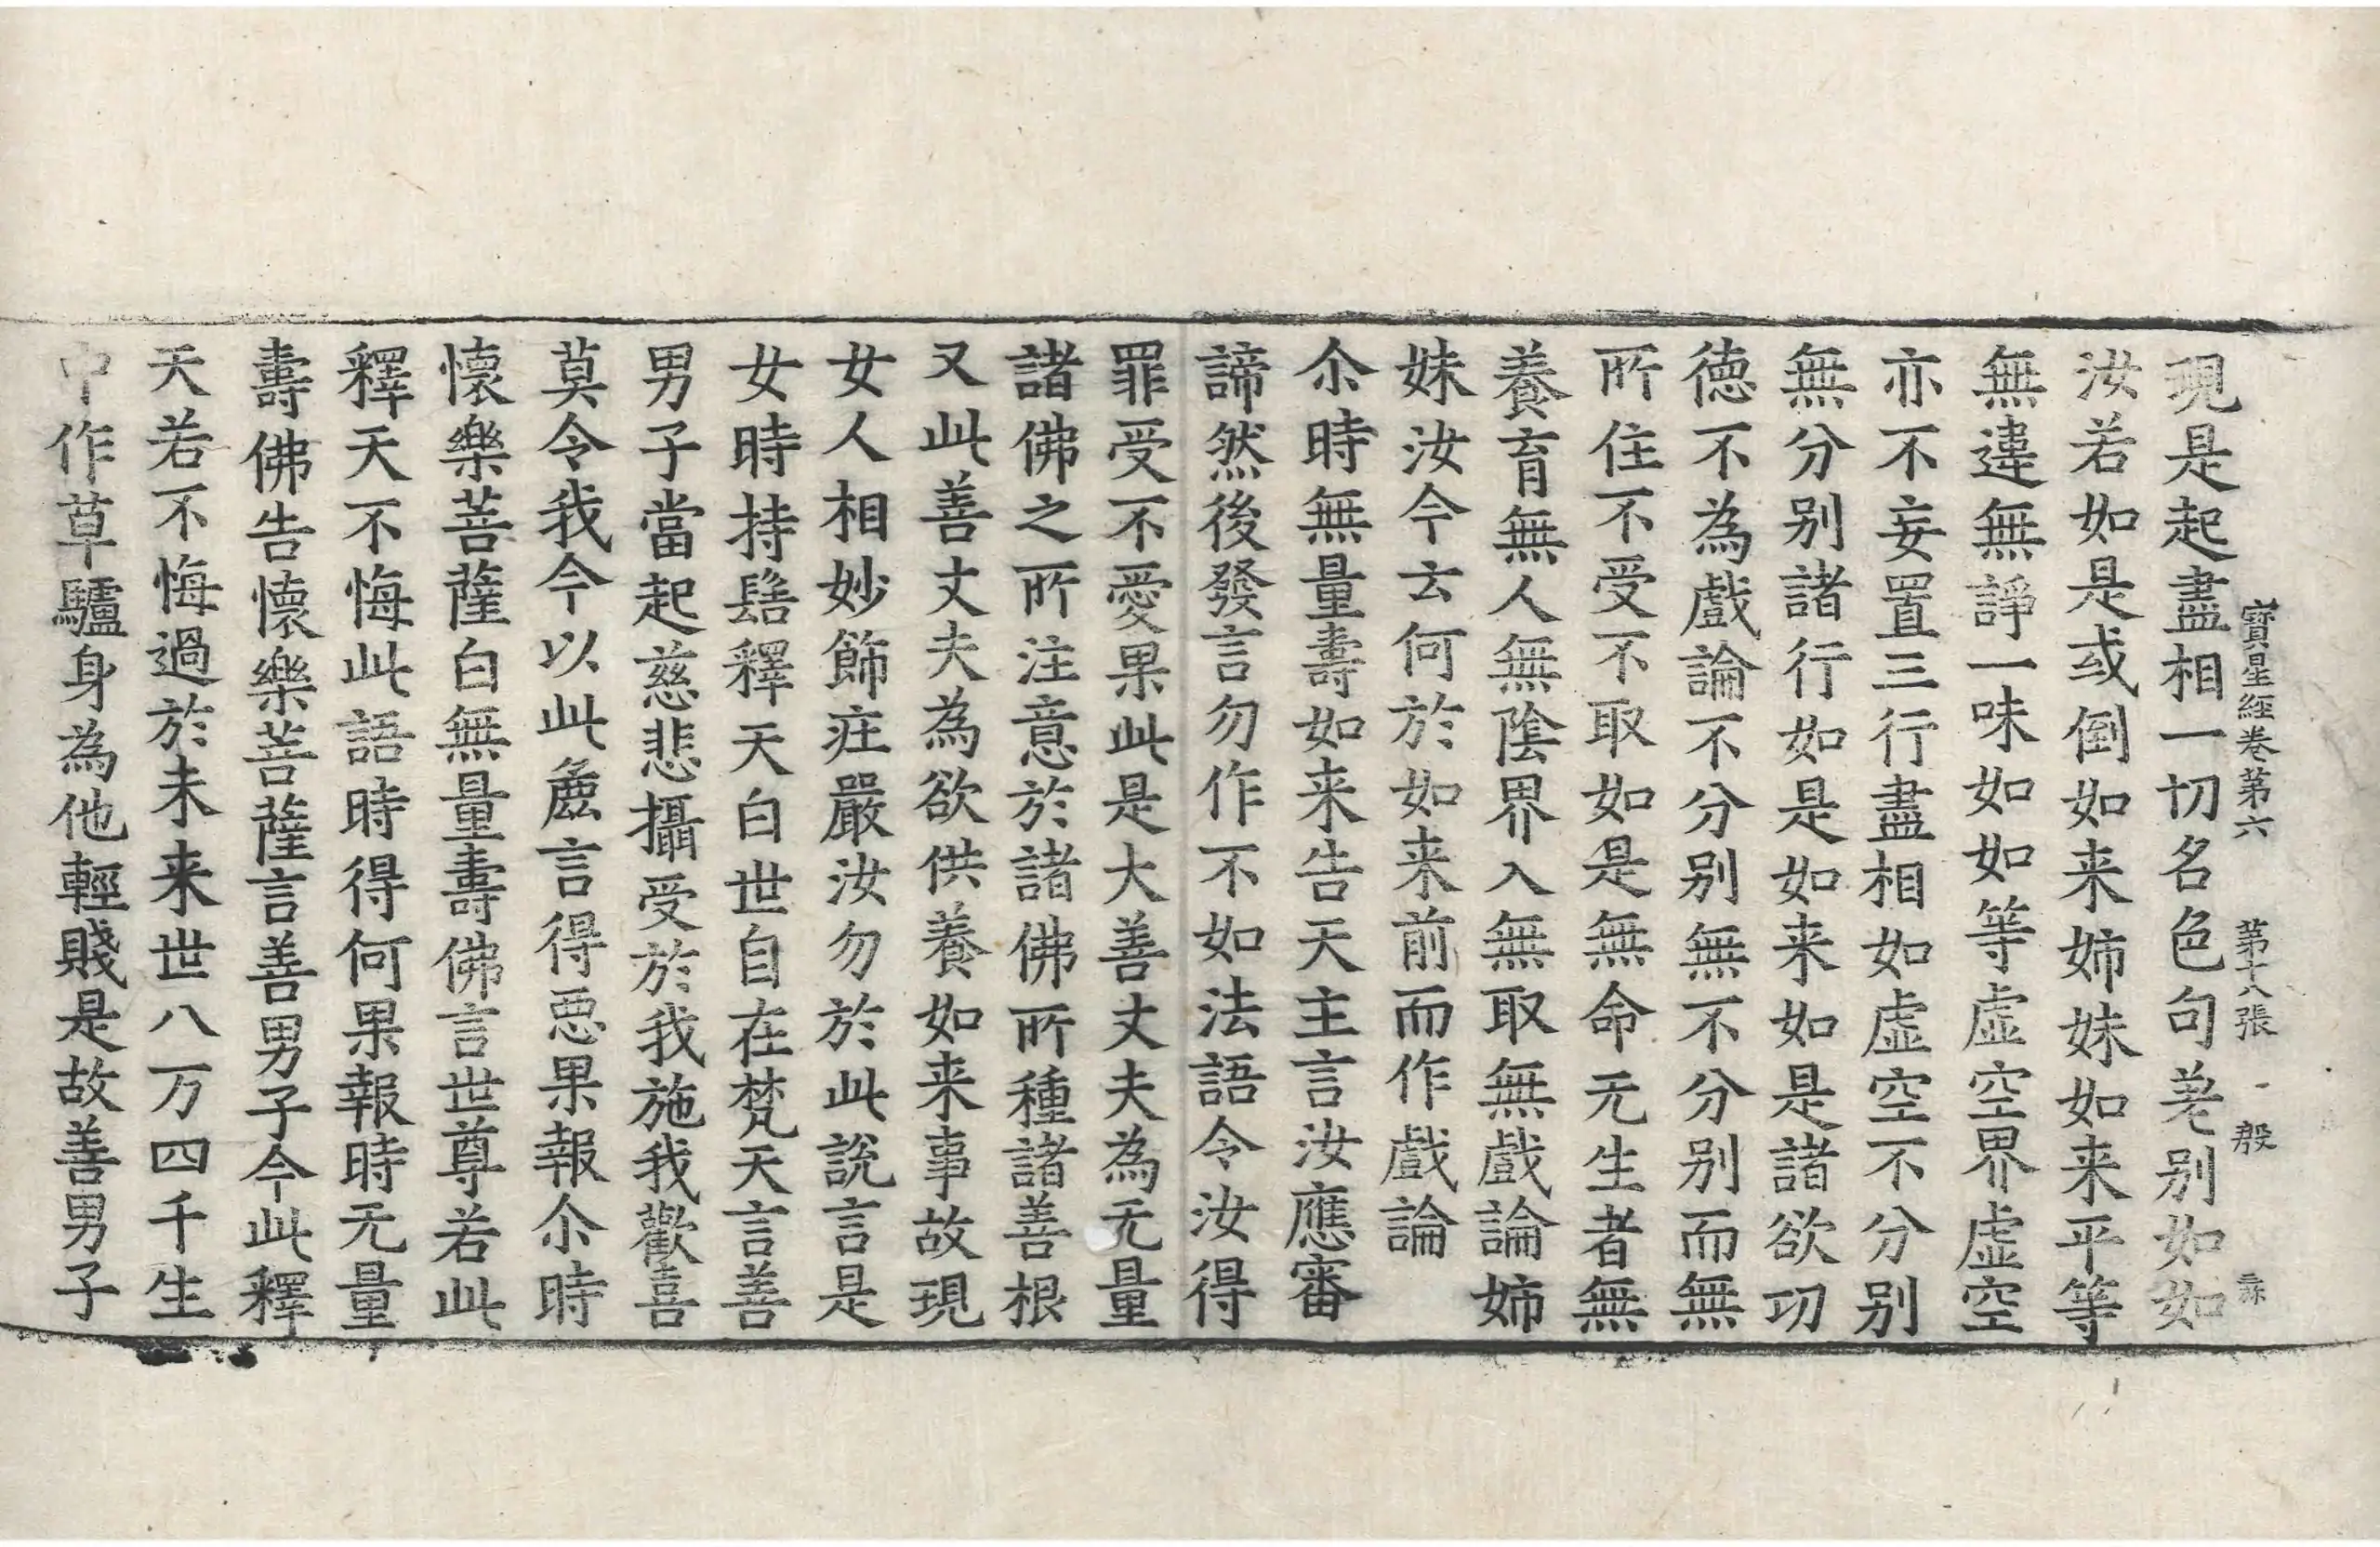 寶星經卷第六　第十八張　殷
現是起盡相一切名色句差别如如
汝若如是或倒如来姉妹如来平等
無違無諍一味如如等虚空界虚空
亦不妄置三行盡相如虚空不分别
無分别諸行如是如来如是諸欲㓛
徳不為戲論不分别無不分别而無
所住不受不取如是無命无生者無
養育無人無陰界入無取無戲論姉
妹汝今云何於如来前而作戲論
尒時無量壽如来告天主言汝應審
諦然後發言勿作不如法語令汝得
罪受不愛果此是大善丈夫為无量
諸佛之所注意於諸佛所種諸善根
又此善丈夫為欲供養如来事故現
女人相妙飾庄嚴汝勿於此說言是
女時持髻釋天白世自在梵天言善
男子當起慈悲攝受於我施我歡喜
莫令我今以此麁言得惡果報尒時
懷樂菩薩白無量壽佛言世尊若此
釋天不悔此語時得何果報時无量
壽佛告懷樂菩薩言善男子今此釋
天若不悔過於未来世八万四千生
中作草驢身為他輕賤是故善男子